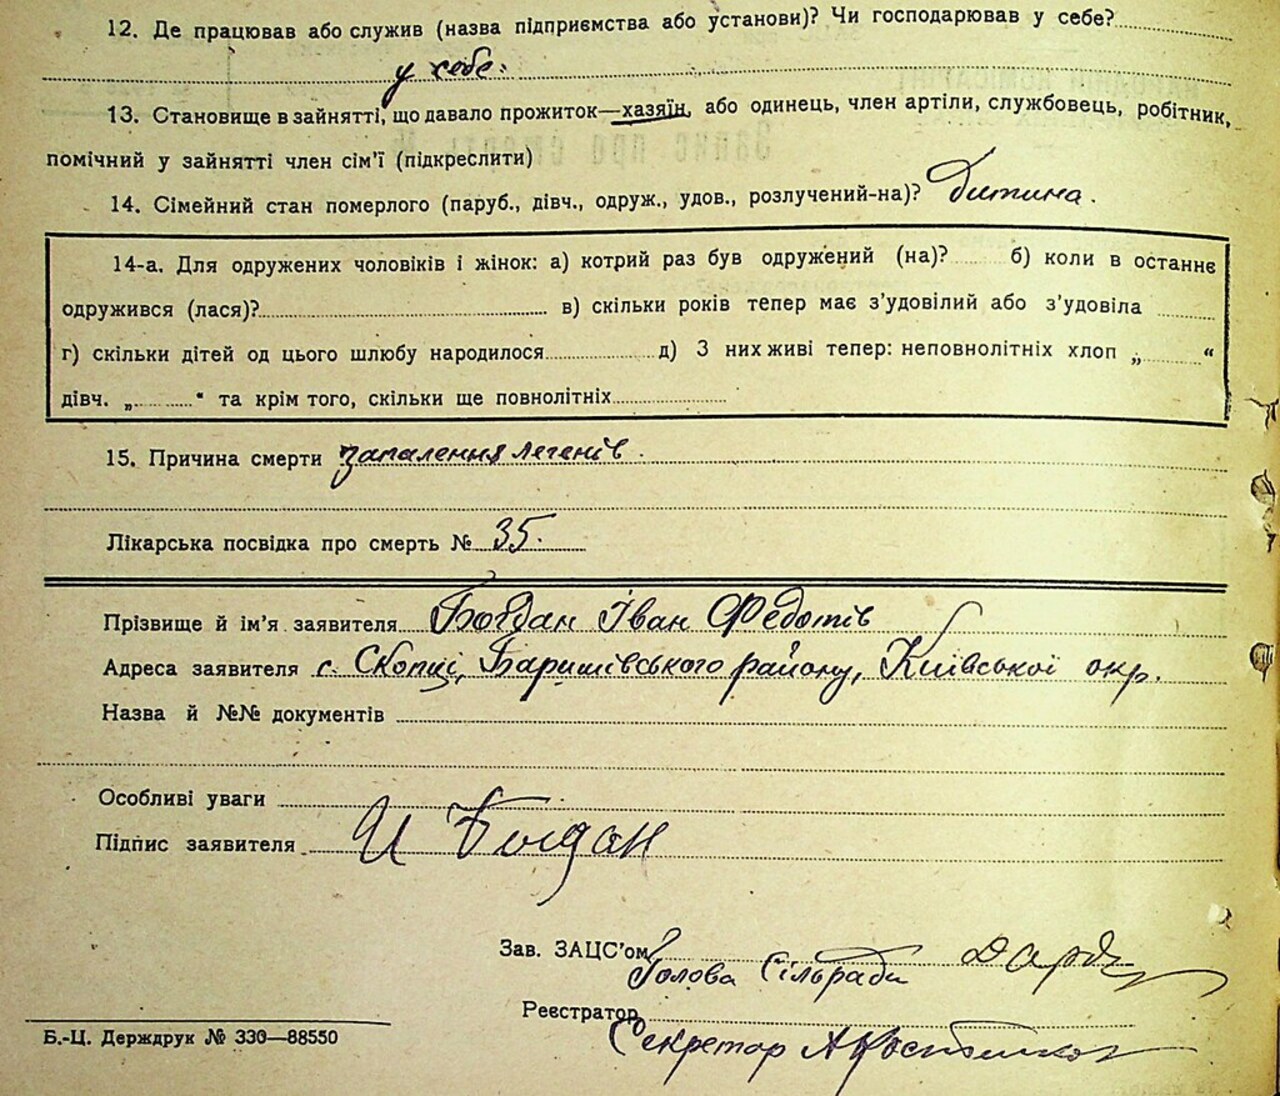 12. Де працював або служив (назва підприємства або установи)? Чи господарював у себе?
у себе.
13. Становище в зайнятті, що давало прожиток—хазяїн, або одинець, член артіли, службовець, робітник,
помічний у зайнятті член сім'ї (підкреслити)
14. Сімейний стан померлого (паруб., дівч., одруж., удов., розлучений-на)? Дитина.
14-а. Для одружених чоловіків і жінок: а) котрий раз був одружений (на)? б) коли в останнє
одружився (лася)? в) скільки років тепер має з'удовілий або з'удовіла
г) скільки дітей од цього шлюбу народилося д) З них живі тепер: неповнолітніх хлоп „ “
дівч. „ “ та крім того, скільки ще повнолітніх
15. Причина смерти запалення легенів.
Лікарська посвідка про смерть № 35.
Прізвище й ім'я заявителя Богдан Іван Федотів
Адреса заявителя с. Скопці, Баришівського району, Київської окр.
Назва й №№ документів
Особливі уваги
Підпис заявителя И Богдан
Зав. ЗАЦС'ом
Голова Сільради
Реєстратор
Секретар
Б.-Ц. Держдрук № 330—88550